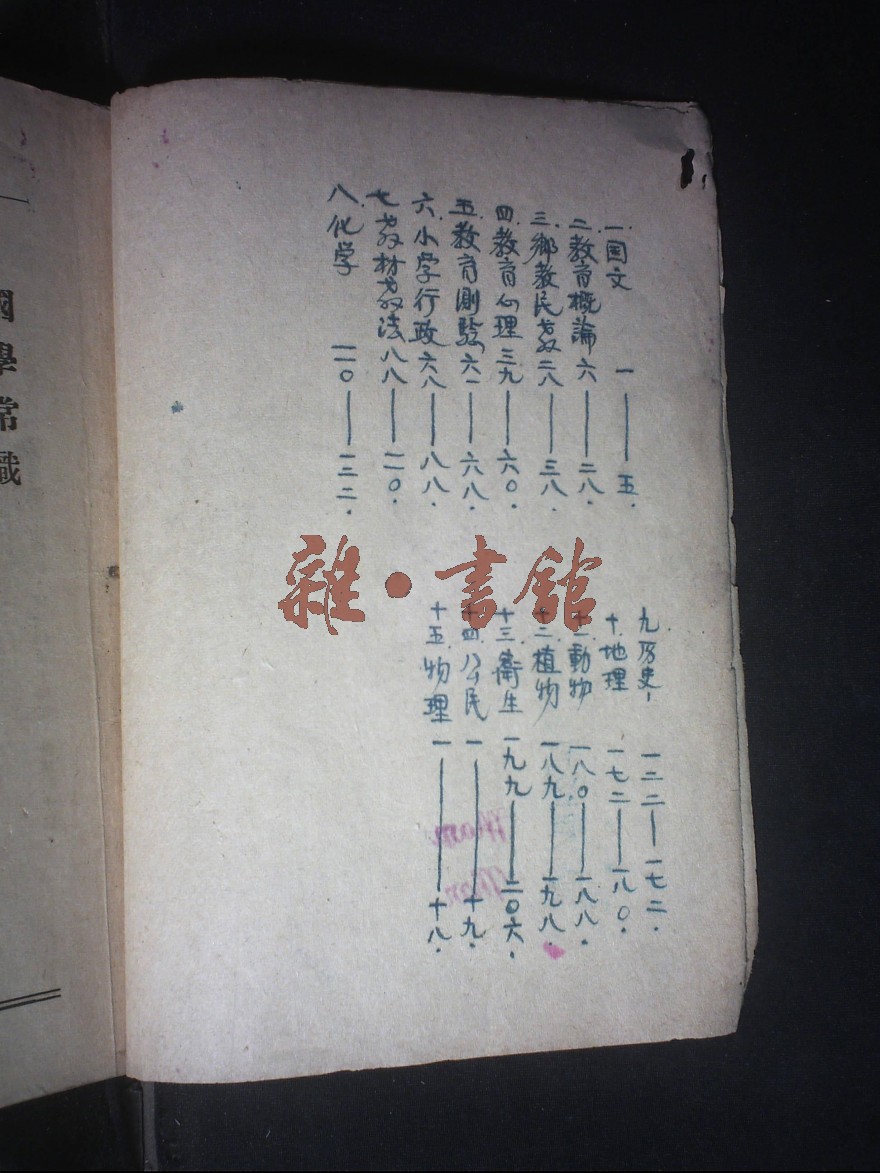 一.国文 一——五.
二.教育概論 六——二八.
三.鄉教民教 二八——三八.
四.教育心理 三九——六〇.
五.教育測驗 六一——六八.
六.小学行政 六八——八八.
七.教材教法 八八——一一〇.
八.化学 一一〇——一二二.
九.历史 一二二——一七二.
十.地理 一七二——一八〇.
十一.動物 一八〇——一八八.
十二.植物 一八九——一九八.
十三.衛生 一九九——二〇六.
十四.公民 一——十九.
十五.物理 一——十八.
雜·書館
國學常識